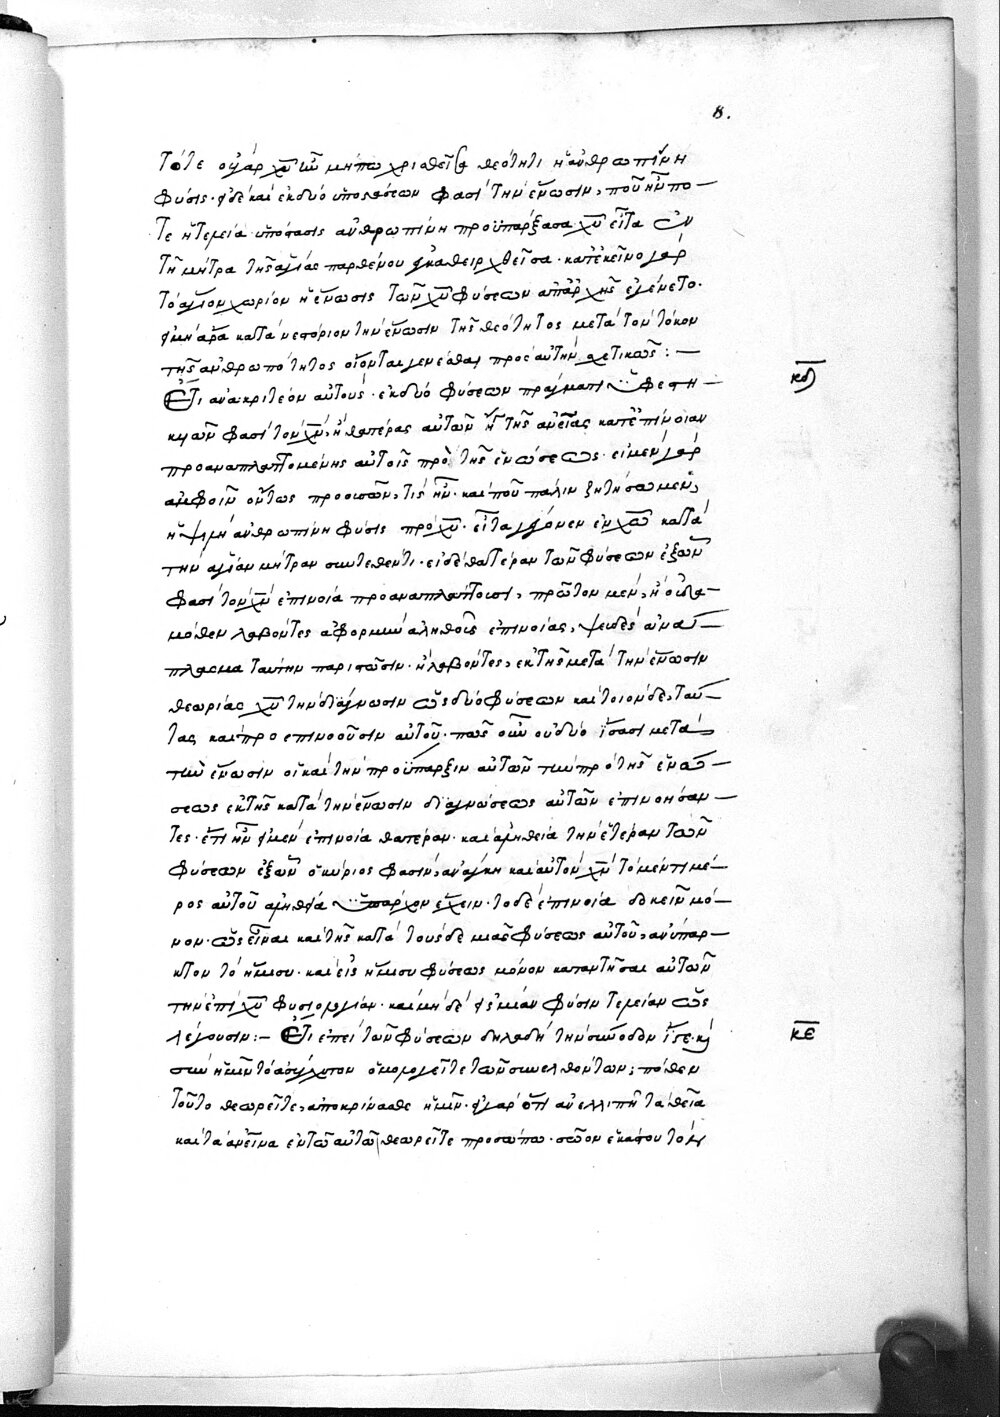 8.
τότε οὐ γὰρ χ̅υ̅ ἦν μήπω χρισθεῖσα θεότητι ἡ ἀνθρωπίνη
φύσις· εἰ δὲ καὶ ἐκ δύο ὑποστάσεων φασὶ τὴν ἕνωσιν, ποῦ ἦν πο-
τε ἡ τελεία ὑπόστασις ἀνθρωπίνη προϋπάρξασα χ̅υ̅ εἶτα ἐν
τῇ μήτρα τῆς ἁγίας παρθένου εἰσκαθειρχθεῖσα· κατ' ἐκεῖνο γὰρ
τὸ ἅγιον χωρίον ἡ ἕνωσις τῶν χ̅υ̅ φύσεων ἀπαρχῆς ἐγένετο·
εἰ μὴ ἄρα κατὰ νεστόριον τὴν ἕνωσιν τῆς θεότητος μετὰ τὸν τόκον
τῆς ἀνθρωπότητος οἴονται γενέσθαι πρὸς αὐτὴν σχετικῶς :—
κδ
Ἔτι ἀνακριτέον αὐτούς· ἐκ δύο φύσεων πραγματικῶς ὑφεστη-
κυιῶν φασὶ τὸν χ̅ν̅, ἢ θατέρας αὐτῶν ἢ τῆς μιᾶς κατ' ἐπίνοιαν
προαναπλαττομένης αὐτοῖς πρὸ τῆς ἑνώσεως· εἰ μὲν γὰρ
ἀμφοῖν οὕτως προουσῶν, τίς ἦν· καὶ ποῦ πάλιν ζητήσωμεν,
ἡ ψιλὴ ἀνθρωπίνη φύσις πρὸ χ̅υ̅· εἶτα γέγονεν ἐν χ̅ω̅ κατὰ
τὴν ἁγίαν μήτραν συντεθέντι· εἰ δὲ θατέραν τῶν φύσεων ἐξ ὧν
φασὶ τὸν χ̅ν̅ ἐπινοία προαναπλάττουσι, πρῶτον μὲν, ἢ οὐδα-
μόθεν λαβόντες ἀφορμὴν ἀληθοῦς ἐπινοίας, ψευδὲς ἀνά-
πλασμα ταύτην παριστῶσιν· ἢ λαβόντες, ἐκ τῆς μετὰ τὴν ἕνωσιν
θεωρίας χ̅υ̅ τὴν διάγνωσιν ὡς δύο φύσεων καὶ τοιῶνδε, ταύ-
τας καὶ προεπινοοῦσιν αὐτοῦ· πῶς οὖν οὐ δύο ἴσασι μετὰ
τὴν ἕνωσιν οἱ καὶ τὴν προΰπαρξιν αὐτῶν τὴν πρὸ τῆς ἑνώ-
σεως ἐκ τῆς κατὰ τὴν ἕνωσιν διαγνώσεως αὐτῶν ἐπινοήσαν-
τες· ἔτι ἦν εἰ μὲν ἐπινοία θατέραν· καὶ ἀληθεία τὴν ἑτέραν τῶν
φύσεων ἐξ ὧν ὁ κύριος φασὶν, ἀνάγκη καὶ αὐτὸν χ̅ν̅ τὸ μέν τι μέ-
ρος αὐτοῦ ἀληθεία ὑπάρχον ἔχειν· τὸ δὲ ἐπινοία δοκεῖν μό-
νον· ὡς εἶναι καὶ τῆς κατὰ τούσδε μιᾶς φύσεως αὐτοῦ, ἀνύπαρ-
κτον τὸ ἥμισυ· καὶ εἰς ἥμισυ φύσεως μόνον καταντῆσαι αὐτῶν
τὴν ἐπὶ χ̅υ̅ φυσιολογίαν· καὶ μὴ δὲ εἰς μίαν φύσιν τελείαν ὡς
λέγουσιν:— Ἔτι ἐπεὶ τῶν φύσεων δηλαδὴ τὴν σύνοδον ἴστε, καὶ
κε
σὺν ἡμῖν τὸ ἀσύγχυτον ὁμολογεῖτε τῶν συνελθόντων; πόθεν
τοῦτο θεωρεῖτε, ἀποκρίνασθε ἡμῖν· εἰ γὰρ ὅτι ἀνελλιπῆ τὰ θεῖα
καὶ τὰ ἀνε̅ῖνα ἐν τῶ αὐτῶ θεωρεῖτε προσώπω· σῶον ἑκάστου τὸν